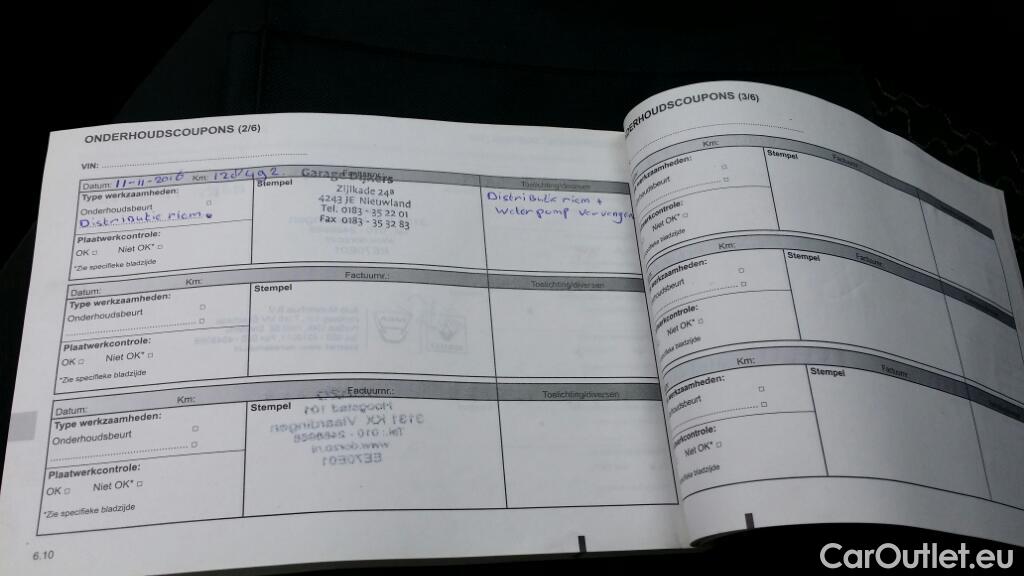 ONDERHOUDSCOUPONS (2/6)
VIN:
Datum: 11-11-2016 Km: Factuurnr.: Toelichting/diversen
Type werkzaamheden:
Onderhoudsbeurt
Distributie riem.
Plaatwerkcontrole:
OK Niet OK*
*Zie specifieke bladzijde
Stempel
Garage Dijkers
Zijlkade 24B
4243 JE Nieuwland
Tel. 0183 - 35 22 01
Fax 0183 - 35 32 83
Distributie riem +
Waterpomp vervangen
Datum: Km: Factuurnr.: Toelichting/diversen
Type werkzaamheden:
Onderhoudsbeurt
Plaatwerkcontrole:
OK Niet OK*
*Zie specifieke bladzijde
Stempel
Datum: Km: Factuurnr.: Toelichting/diversen
Type werkzaamheden:
Onderhoudsbeurt
Plaatwerkcontrole:
OK Niet OK*
*Zie specifieke bladzijde
Stempel
6.10
DERHOUDSCOUPONS (3/6)
Km: Factuurnr.:
werkzaamheden:
houdsbeurt
werkcontrole:
Niet OK*
specifieke bladzijde
Stempel
Km: Factuurnr.:
werkzaamheden:
houdsbeurt
werkcontrole:
Niet OK*
specifieke bladzijde
Stempel
Km: Factuurnr.
werkzaamheden:
houdsbeurt
werkcontrole:
Niet OK*
specifieke bladzijde
Stempel
CarOutlet.eu